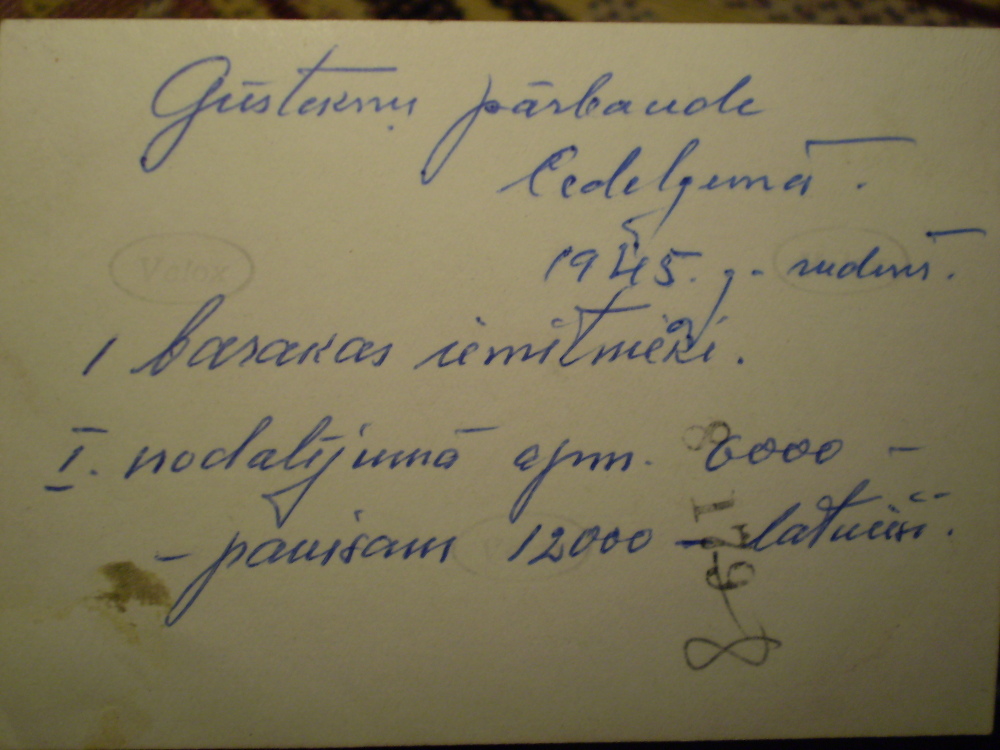 Gūstekņu pārbaude
Cedelgemā.
1945. g. rudenī.
1 barakas iemītnieki.
I. nodalījumā apm. 6000 -
- pavisam 12000 - latvieši.
Velox